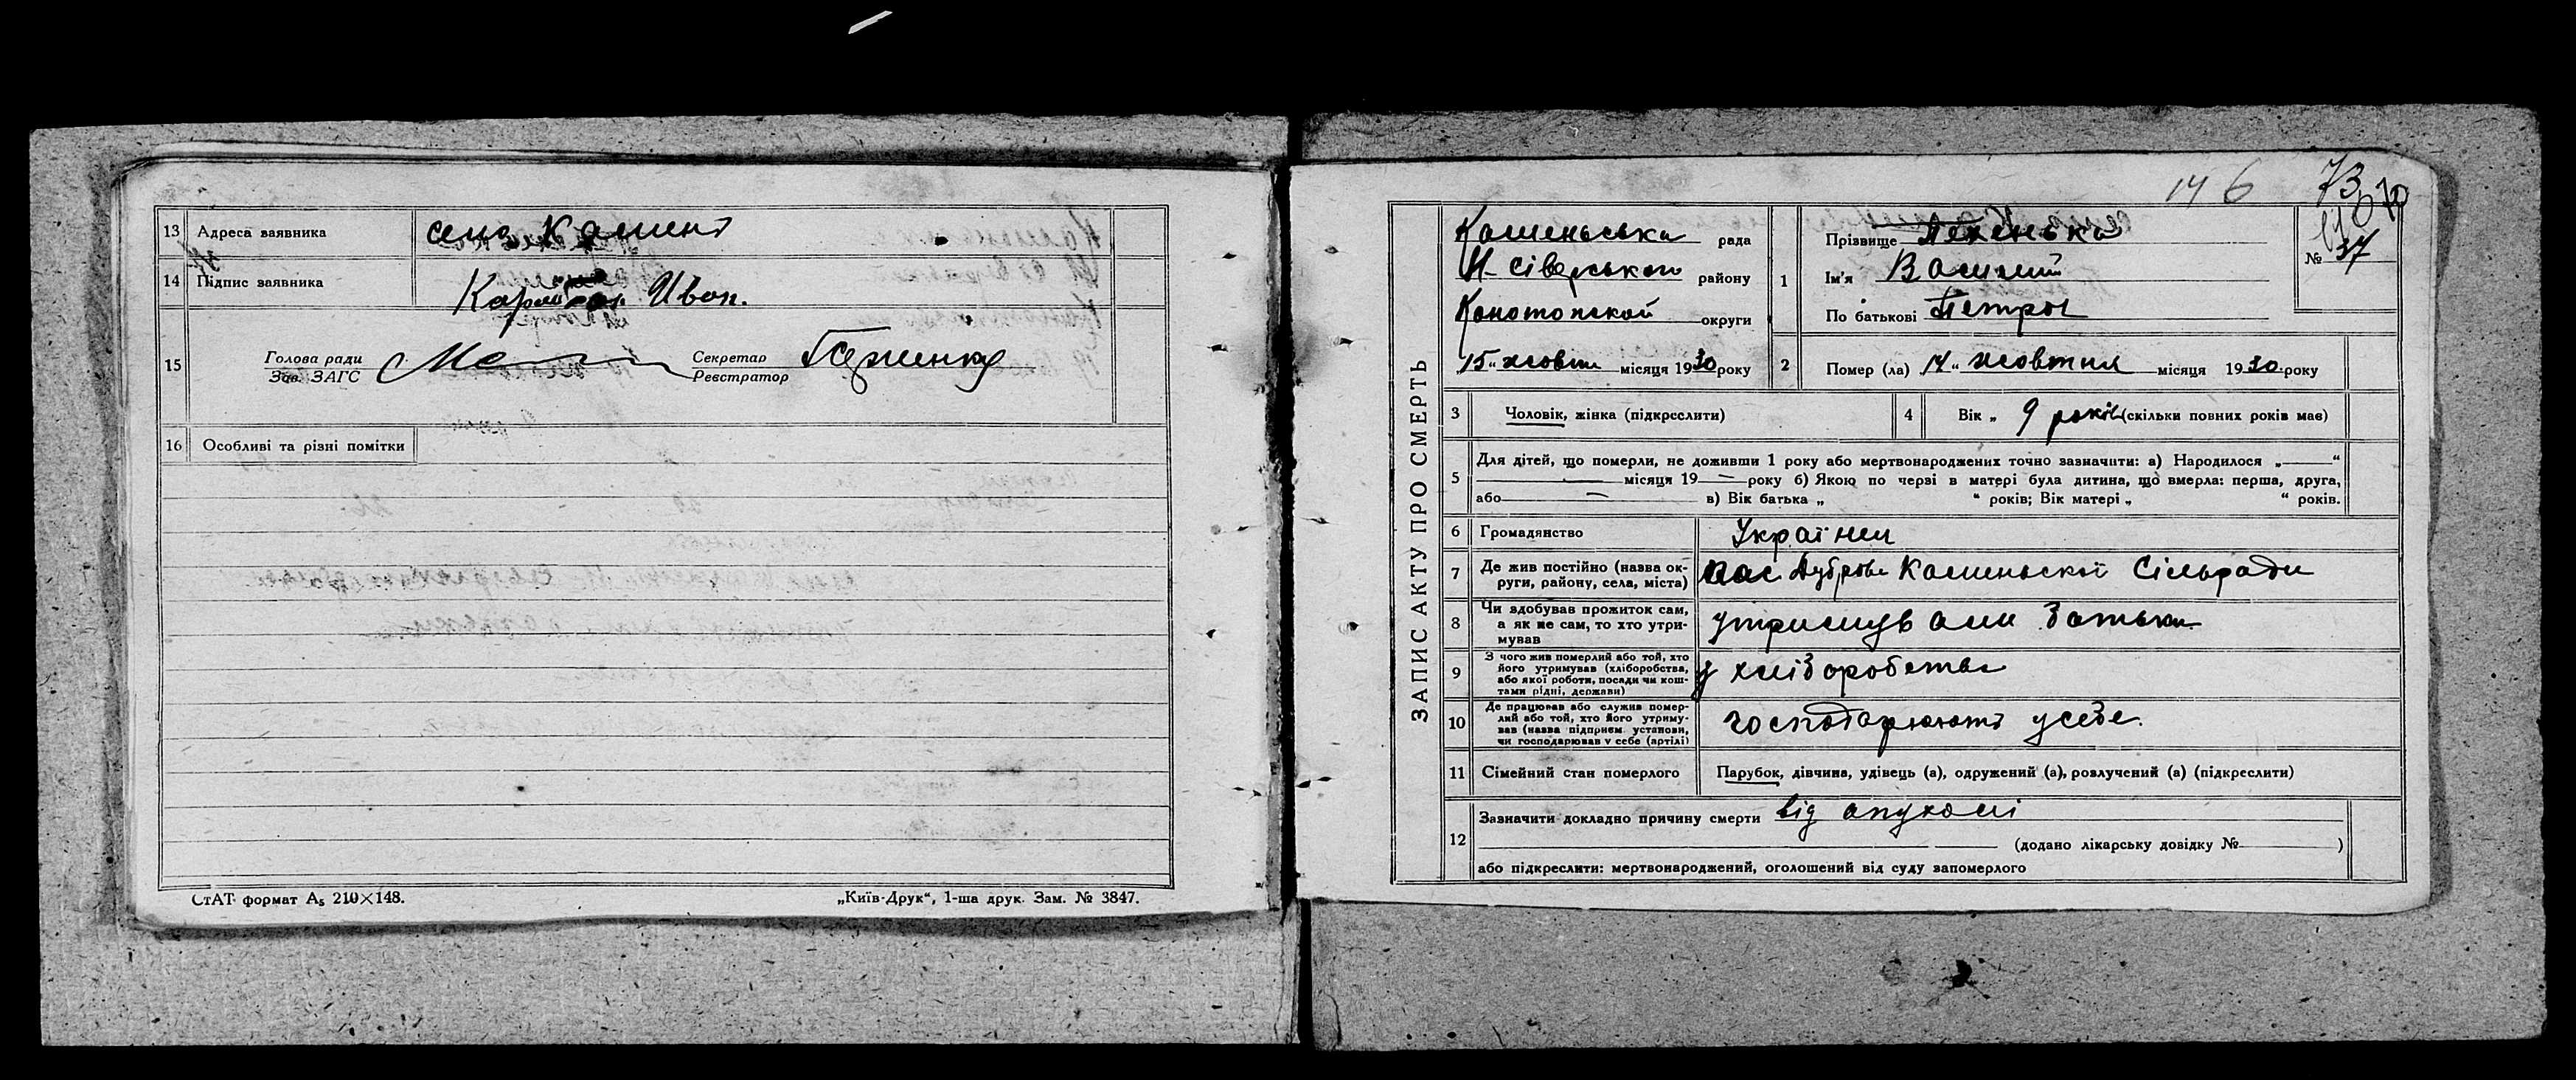 13 Адреса заявника село Камень
14 Підпис заявника Иван.
15 Голова ради
Зав. ЗАГС
Секретар
Реєстратор
16 Особливі та різні помітки
СтАТ формат А5 210×148.
„Київ-Друк“, 1-ша друк. Зам. № 3847.
14 6 73
ЗАПИС АКТУ ПРО СМЕРТЬ
Каменьська рада
Н-Сіверського району
Конотопской округи
15 жовтн місяця 1930 року
1 Прізвище
Ім'я Василий
По батькові Петров
№ 37
2 Помер (ла) 14 „ жовтня місяця 1930 року
3 Чоловік, жінка (підкреслити)
4 Вік „ 9 років (скільки повних років має)
5 Для дітей, що померли, не доживши 1 року або мертвонароджених точно зазначити: а) Народилося „—“
місяця 19 — року б) Якою по черзі в матері була дитина, що вмерла: перша, друга,
або — в) Вік батька „ “ років; Вік матері „ “ років.
6 Громадянство Україней
7 Де жив постійно (назва ок-
руги, району, села, міста) Каменьскої Сільради
8 Чи здобував прожиток сам,
а як не сам, то хто утри-
мував утримував али батьки
9 З чого жив померлий або той, хто
його утримував (хліборобства,
або якої роботи, посади чи кош-
тами рідні, держави) у хліборобства
10 Де працював або служив помер-
лий або той, хто його утриму-
вав (назва підприєм. установи,
чи господарював у себе (артілі) господарюють усебе.
11 Сімейний стан померлого Парубок, дівчина, удівець (а), одружений (а), розлучений (а) (підкреслити)
12 Зазначити докладно причину смерти від опухолі
(додано лікарську довідку № )
або підкреслити: мертвонароджений, оголошений від суду запомерлого